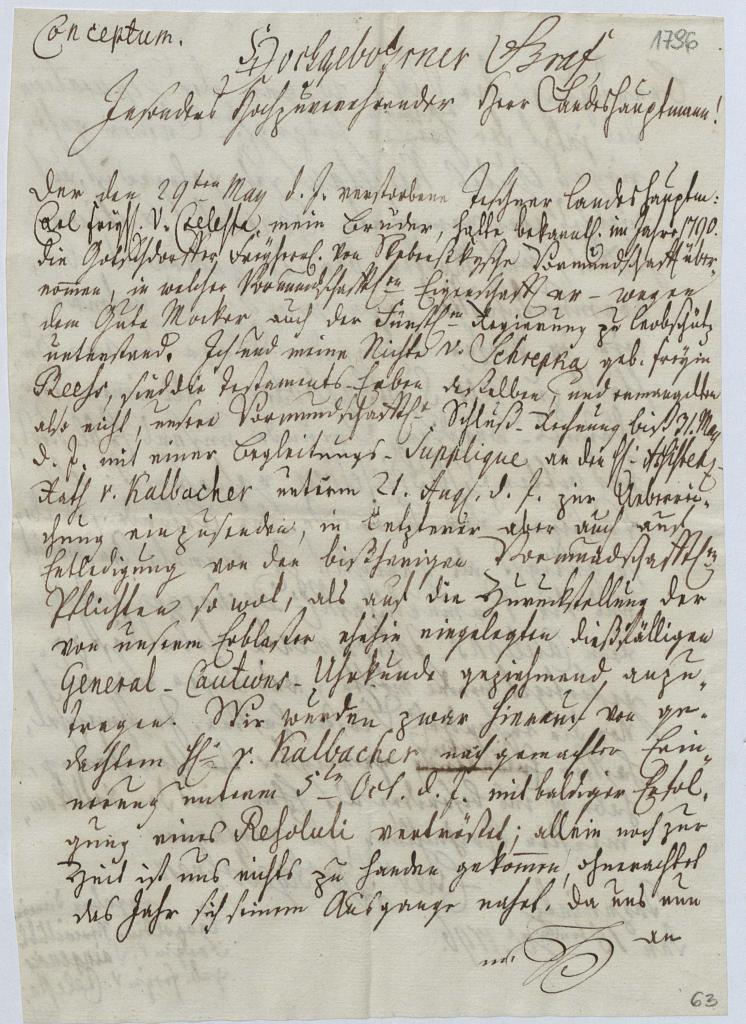 Conceptum.
1796
Hochgebohrner Graf,
Insonders Hochzuverehrender Herr Landeshauptmann!
Der den 29ten May d. J. verstorbene Teschner Landeshauptm:
Carl Freyh. v. Celesta, mein Bruder, hatte bekanntl. im Jahre 1790.
die Freyherrl. von Vormundschafft über-
nommen, in welcher Vormundschafftlen Eigenschafft er - wegen
dem Gute Mocker auch der Fürstln Regierung zu Leobschütz
unterstand. Ich und meine Nichte v. Schrepka geb. Freyin
Reess, sind die Testaments-Erben desselben, und ermangelten
also nicht, unsere Vormundschafftle Schluß-Rechnung biß 31. May
d. J. mit einer Begleitungs-Supplique an den H: Assistenz-
Rath v. Kalbacher unterm 21. Aug. d. J. zur Ueberrei-
chung einzusenden, in letzterer aber auch auf
Entledigung von den bißherigen Vormundschafftlen
Pflichten so wol, als auf die Zurückstellung der
von unserem Erblasser ehehin eingelegten dießfälligen
General-Cautions-Uhrkunde geziehmend anzu-
tragen. Wir wurden zwar hierauf von ge-
dachtem Hn v. Kalbacher nach gemachter Erin-
nerung unterm 5ten Oct. d. J. mit baldiger Erfol-
gung eines Resoluti vertröstet; allein noch zur
Zeit ist uns nichts zu Handen gekommen, ohnerachtet
das Jahr sich seinem Ausgange nahet. Da uns nun
an
63